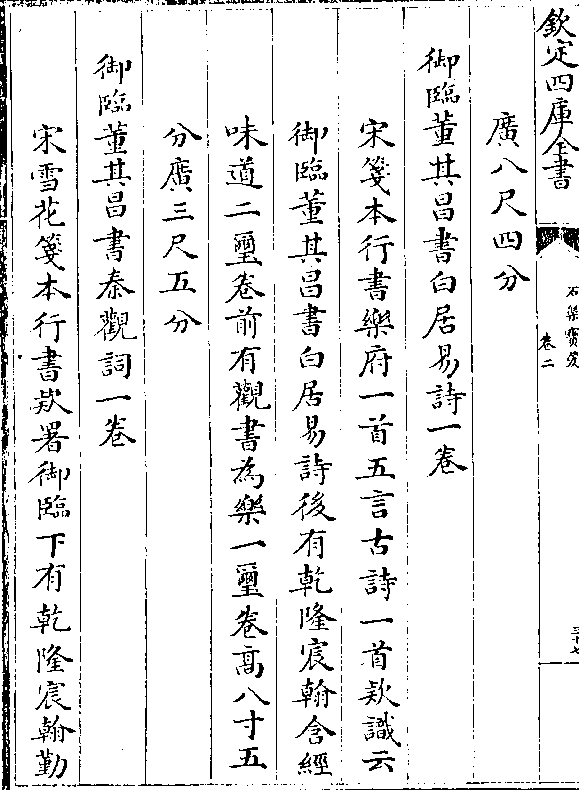 欽定四庫全書
石渠寶笈
卷二
廣八尺四分
御臨董其昌書白居易詩一卷
宋箋本行書樂府一首五言古詩一首欵識云
御臨董其昌書白居易詩後有乾隆宸翰含經
味道二璽卷前有觀書為樂一璽卷髙八寸五
分廣三尺五分
御臨董其昌書秦觀詞一卷
宋雪花箋本行書欵署御臨下有乾隆宸翰勤